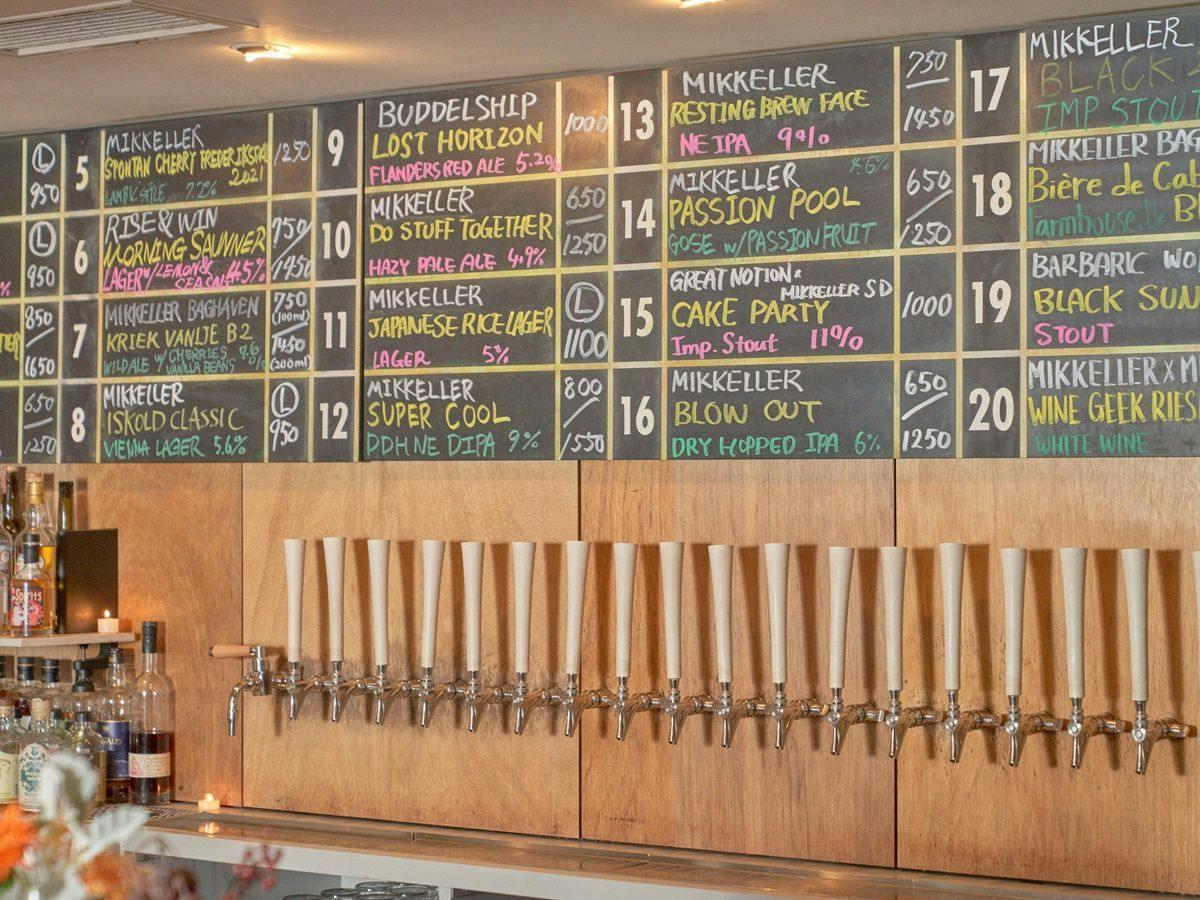 L
950
L
950
%
850
1650
650
1250
5
MIKKELLER
SPONTAN CHERRY FREDERIKSDAL
2021
LAMBIC STYLE 7.2%
1250
6
RISE & WIN
MORNING SAUNNER
LAGER w/ LEMON &
SEA SALT 4.5%
750
1450
7
MIKKELLER BAGHAVEN
KRIEK VANIJE B2
WILD ALE W/ CHERRIES
VANILLA BEANS
750
(100ml)
1450
(200ml)
8
MIKKELLER
ISKOLD CLASSIC
VIENNA LAGER 5.6%
L
950
9
BUDDELSHIP
LOST HORIZON
FLANDERS RED ALE 5.2%
1000
10
MIKKELLER
DO STUFF TOGETHER
HAZY PALE ALE 4.9%
650
1250
11
MIKKELLER
JAPANESE RICE LAGER
LAGER 5%
L
1100
12
MIKKELLER
SUPER COOL
DDH NE DIPA 9%
800
1550
13
MIKKELLER
RESTING BREW FACE
NE IPA 9%
750
1450
14
MIKKELLER 4.6%
PASSION POOL
GOSE w/ PASSIONFRUIT
650
1250
15
GREAT NOTION &
MIKKELLER SD
CAKE PARTY
Imp. Stout 11%
1000
16
MIKKELLER
BLOW OUT
DRY HOPPED IPA 6%
650
1250
17
MIKKELLER
BLACK
IMP STOU
18
MIKKELLER BAG
Bière de Ca
Farmhouse Ale B
19
BARBARIC WO
BLACK SUN
STOUT
20
MIKKELLER X M
WINE GEEK RIES
WHITE WINE
Spirits